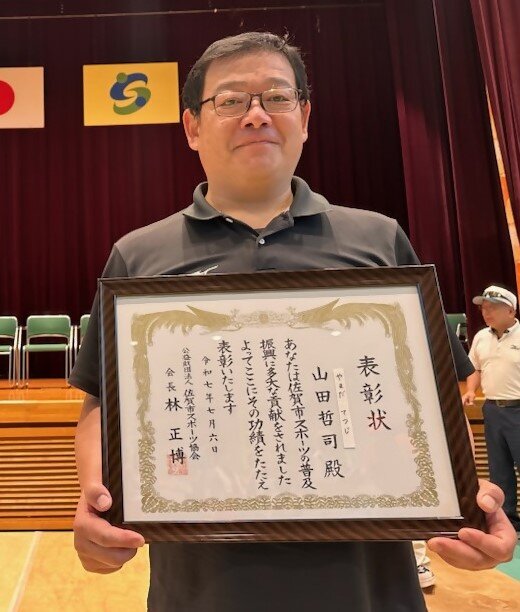 表彰状
やまだ てつじ
山田哲司 殿
あなたは佐賀市スポーツの普及
振興に多大な貢献をされました
よってここにその功績をたたえ
表彰いたします
令和七年七月六日
公益財団法人佐賀市スポーツ協会
会長 林 正博